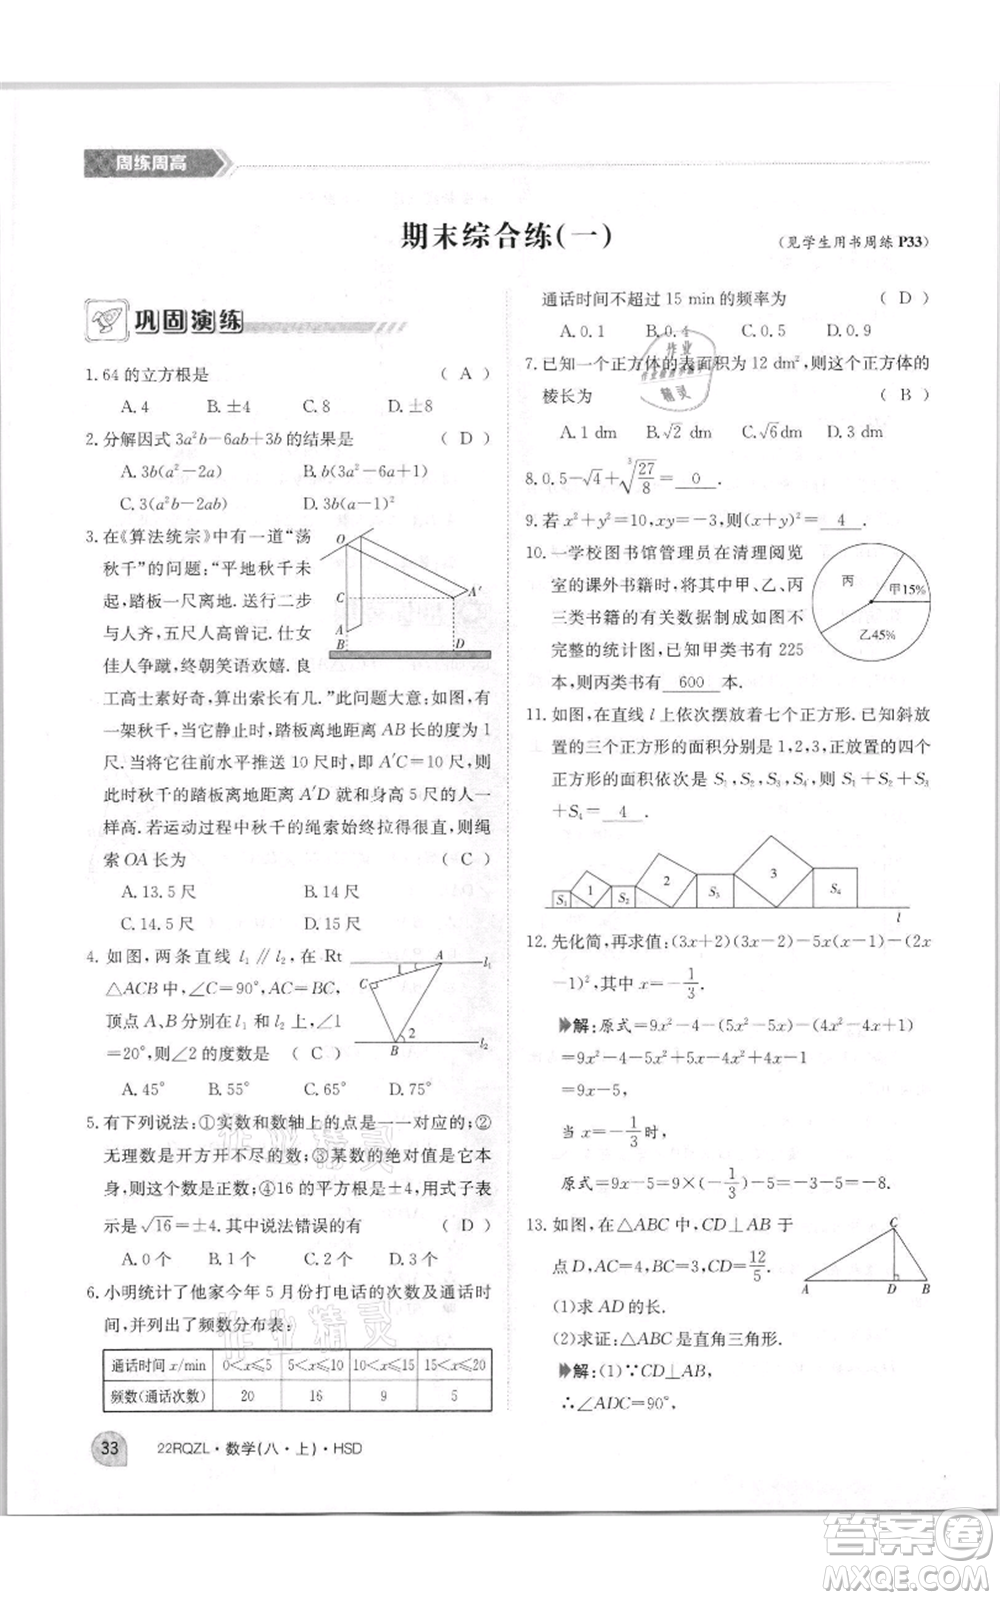 周练周高
期末综合练(一)
(见学生用书周练 P33)
巩固演练
1.64 的立方根是 ( A )
A.4 B.±4 C.8 D.±8
2.分解因式 3a²b－6ab＋3b 的结果是 ( D )
A.3b(a²－2a) B.b(3a²－6a)
C.3(a²b－2ab) D.3b(a－1)²
3.在《算法统宗》中有一道“荡
秋千”的问题:“平地秋千未
起,踏板一尺离地.送行二步
与人齐,五尺人高曾记.仕女
佳人争蹴,终朝笑语欢嬉.良
工高士素好奇,算出索长有几.”此问题大意:如图,有
一架秋千,当它静止时,踏板离地面距离 AB 的长度为 1
尺.当将它往前水平推送 10 尺时,即 A′C＝10 尺,
此时秋千的踏板离地距离 A′D 就和身高 5 尺的人一
样高.若运动过程中秋千的绳索始终拉得很直,则绳
索 OA 长为 ( C )
A.13.5 尺 B.14 尺
C.14.5 尺 D.15 尺
O
C
A
B
A′
D
4.如图,两条直线 l₁∥l₂,在 Rt
△ACB 中,∠C＝90°,AC＝BC,
顶点 A、B 分别在 l₁ 和 l₂ 上,∠1
＝20°,则∠2 的度数是 ( C )
A.45° B.55° C.65° D.75°
A
l₁
C
1
2
B
l₂
5.有下列说法:①实数和数轴上的点是一一对应的;②
无理数是开方开不尽的数;③某数的绝对值是它本
身,则这个数是正数;④16 的平方根是±4,用式子表
示是√16＝±4.其中说法错误的有 ( D )
A.0 个 B.1 个 C.2 个 D.3 个
6.小明统计了他家今年 5 月份打电话的次数及通话时
间,并列出了频数分布表:
通话时间 x/min 0<x≤5 5<x≤10 10<x≤15 15<x≤20
频数(通话次数) 20 16 9 5
33 22RQZL·数学(八·上)·HSD
通话时间不超过 15 min 的频率为 ( D )
A.0.1 B.0.4 C.0.5 D.0.9
7.已知一个正方体的表面积为 12 dm²,则这个正方体的
棱长为 ( B )
A.1 dm B.√2 dm C.√6 dm D.3 dm
8.0.5－√4＋∛(27/8)＝ 0 .
9.若 x²＋y²＝10,xy＝－3,则(x＋y)²＝ 4 .
10.一学校图书馆管理员在清理阅览
室的课外书籍时,将其中甲、乙、丙
三类书籍的有关数据制成如图不
完整的统计图.已知甲类书有 225
本,则丙类书有 600 本.
丙
甲15%
乙45%
11.如图,在直线 l 上依次摆放着七个正方形.已知斜放
置的三个正方形的面积分别是 1,2,3,正放置的四个
正方形的面积依次是 S₁、S₂、S₃、S₄,则 S₁＋S₂＋S₃
＋S₄＝ 4 .
S₁ 1 S₂ 2 S₃ 3 S₄
l
12.先化简,再求值:(3x＋2)(3x－2)－5x(x－1)－(2x
－1)²,其中 x＝－1/3.
解:原式＝9x²－4－(5x²－5x)－(4x²－4x＋1)
＝9x²－4－5x²＋5x－4x²＋4x－1
＝9x－5.
当 x＝－1/3时,
原式＝9x－5＝9×(－1/3)－5＝－3－5＝－8.
13.如图,在△ABC 中,CD⊥AB 于
点 D,AC＝4,BC＝3,CD＝12/5.
(1)求 AD 的长.
(2)求证:△ABC 是直角三角形.
C
A
D
B
解:(1)∵CD⊥AB,
∴∠ADC＝90°,
作业精灵
作业精灵
作业
精灵
答案卷
MXQE.COM